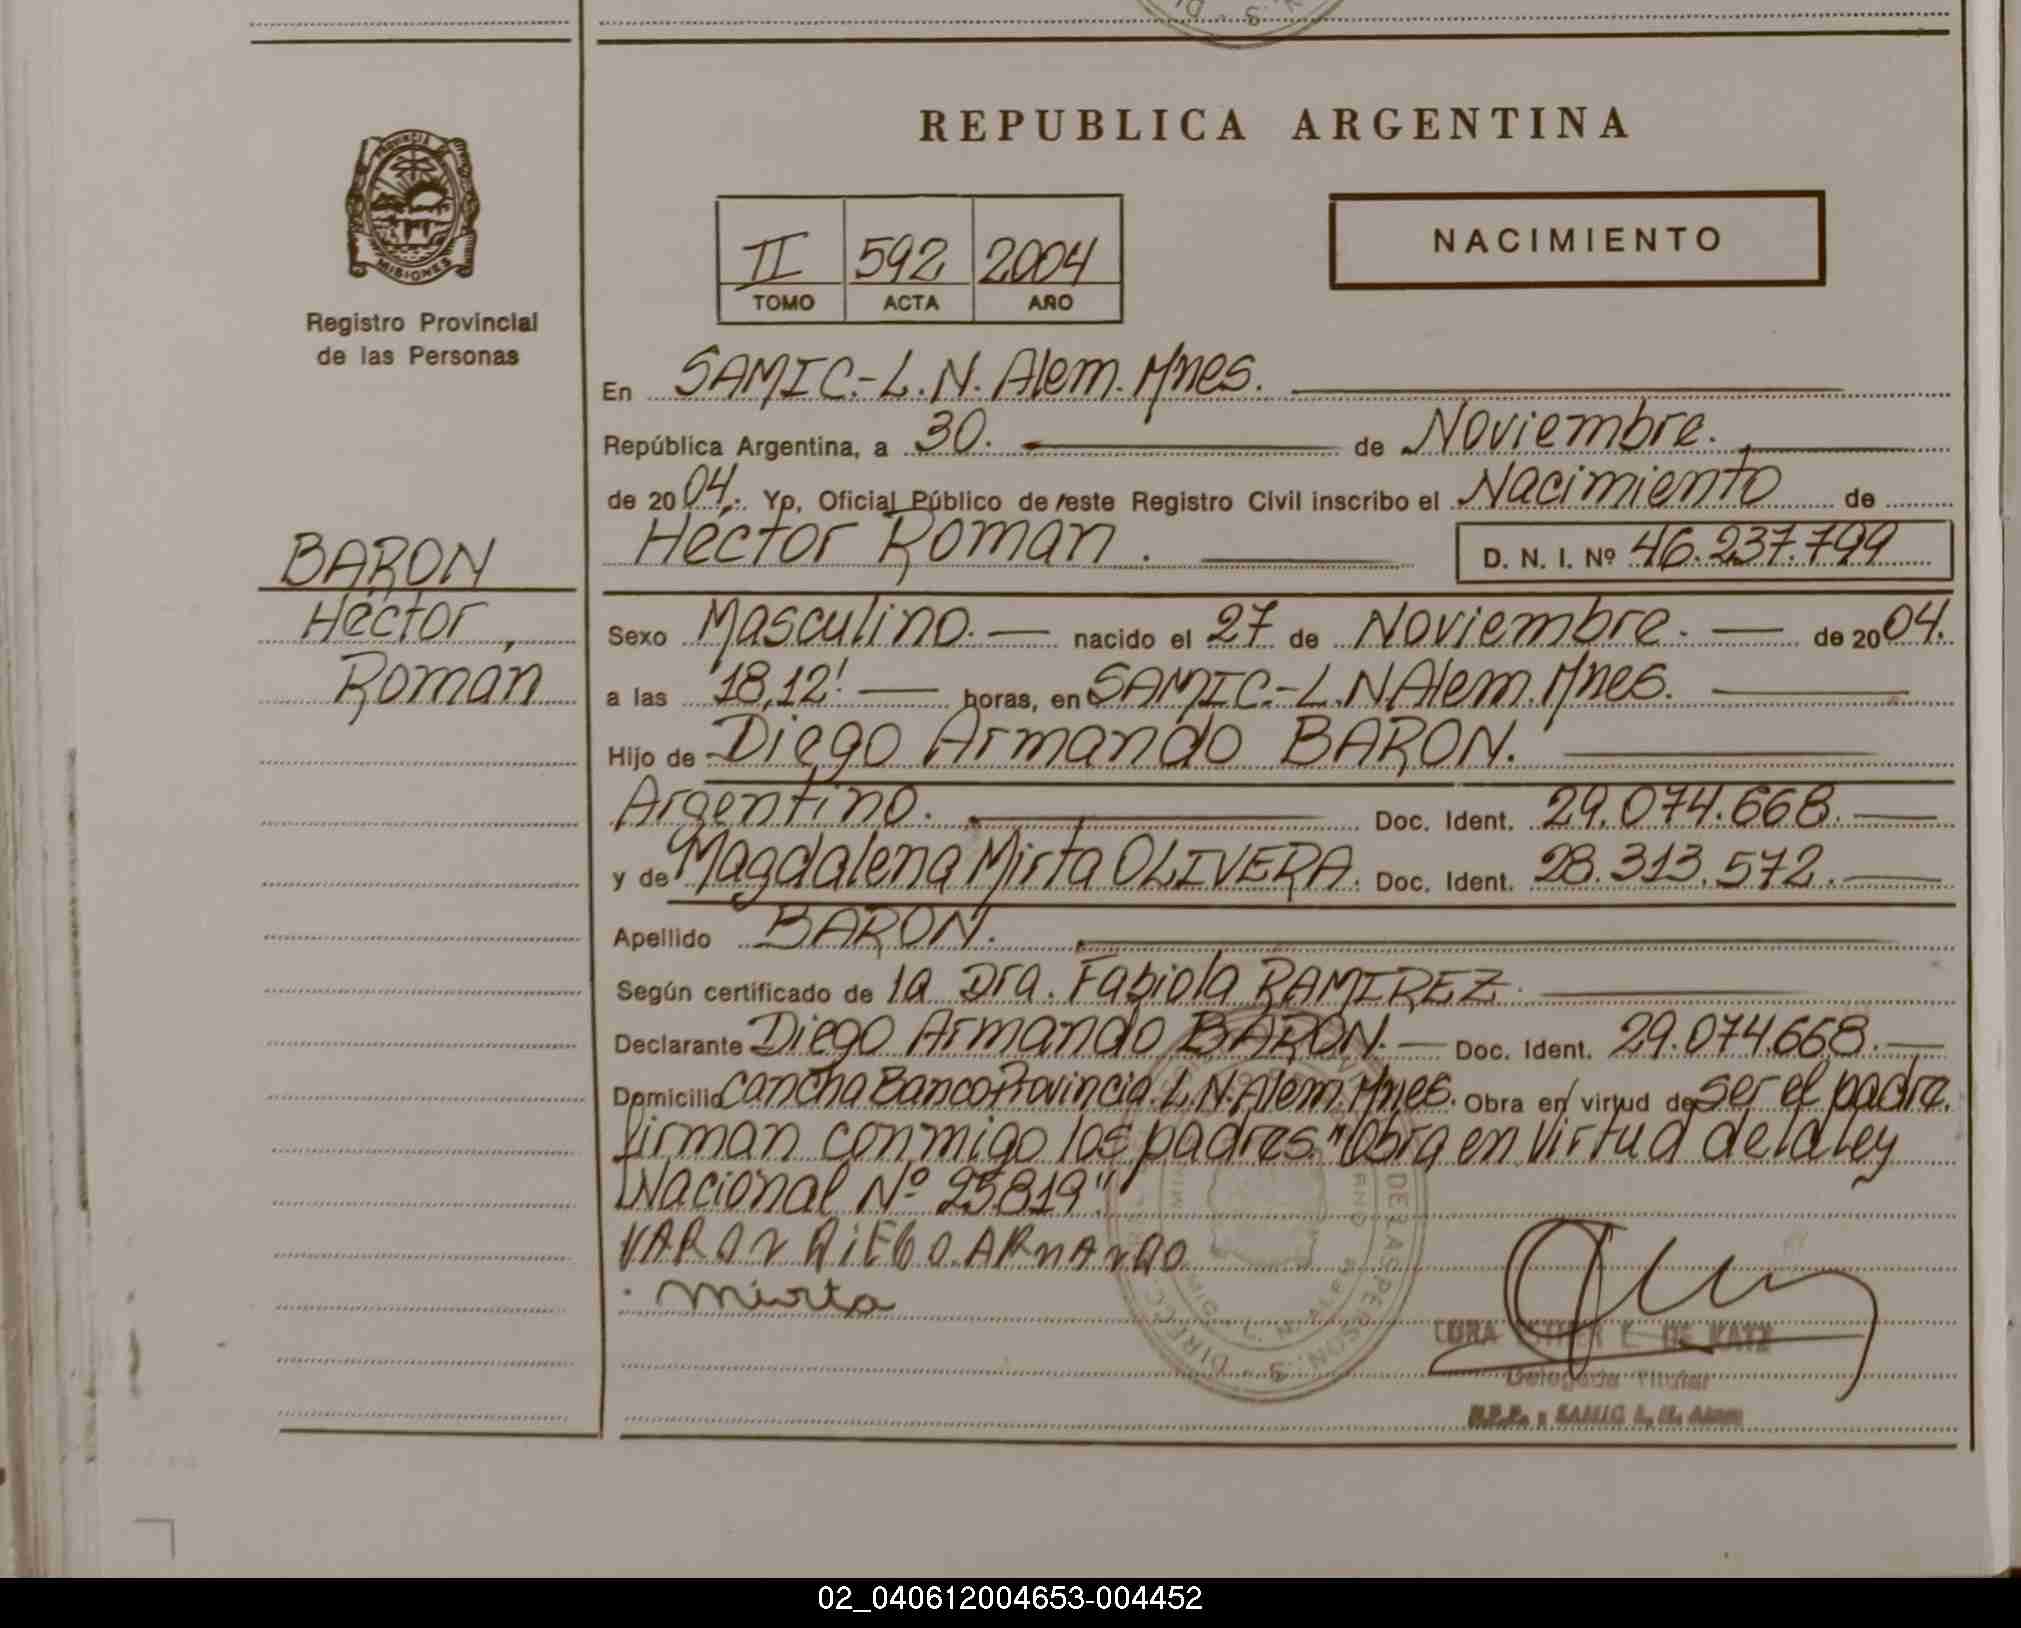 REPUBLICA ARGENTINA
PROVINCIA
MISIONES
Registro Provincial
de las Personas
II 592 2004
TOMO ACTA AÑO
NACIMIENTO
En SAMIC.-L.N. Alem. Mnes.
República Argentina, a 30. de Noviembre.
de 2004. Yo, Oficial Público de este Registro Civil inscribo el Nacimiento de
Héctor Roman. D. N. I. Nº 46.237.799
BARON
Héctor,
Roman
Sexo Masculino. nacido el 27 de Noviembre. de 2004.
a las 18,12' horas, en SAMIC.-L.N Alem. Mnes.
Hijo de Diego Armando BARON.
Argentino. Doc. Ident. 29.074.668.
y de Magdalena Mirta OLIVERA. Doc. Ident. 28.313.572.
Apellido BARON.
Según certificado de la Dra. Fabiola RAMIREZ.
Declarante Diego Armando BARON. Doc. Ident. 29.074.668.
Domicilio Cancha Banco Provincia. L.N. Alem. Mnes. Obra en virtud de ser el padre.
firman conmigo los padres. "Obra en virtud de la ley
Nacional Nº 25819"
VARON DIEGO ARMANDO
Mirta
DE KATZ
Delegada Titular
R.P.P. - SAMIC L. N. Alem
02_040612004653-004452